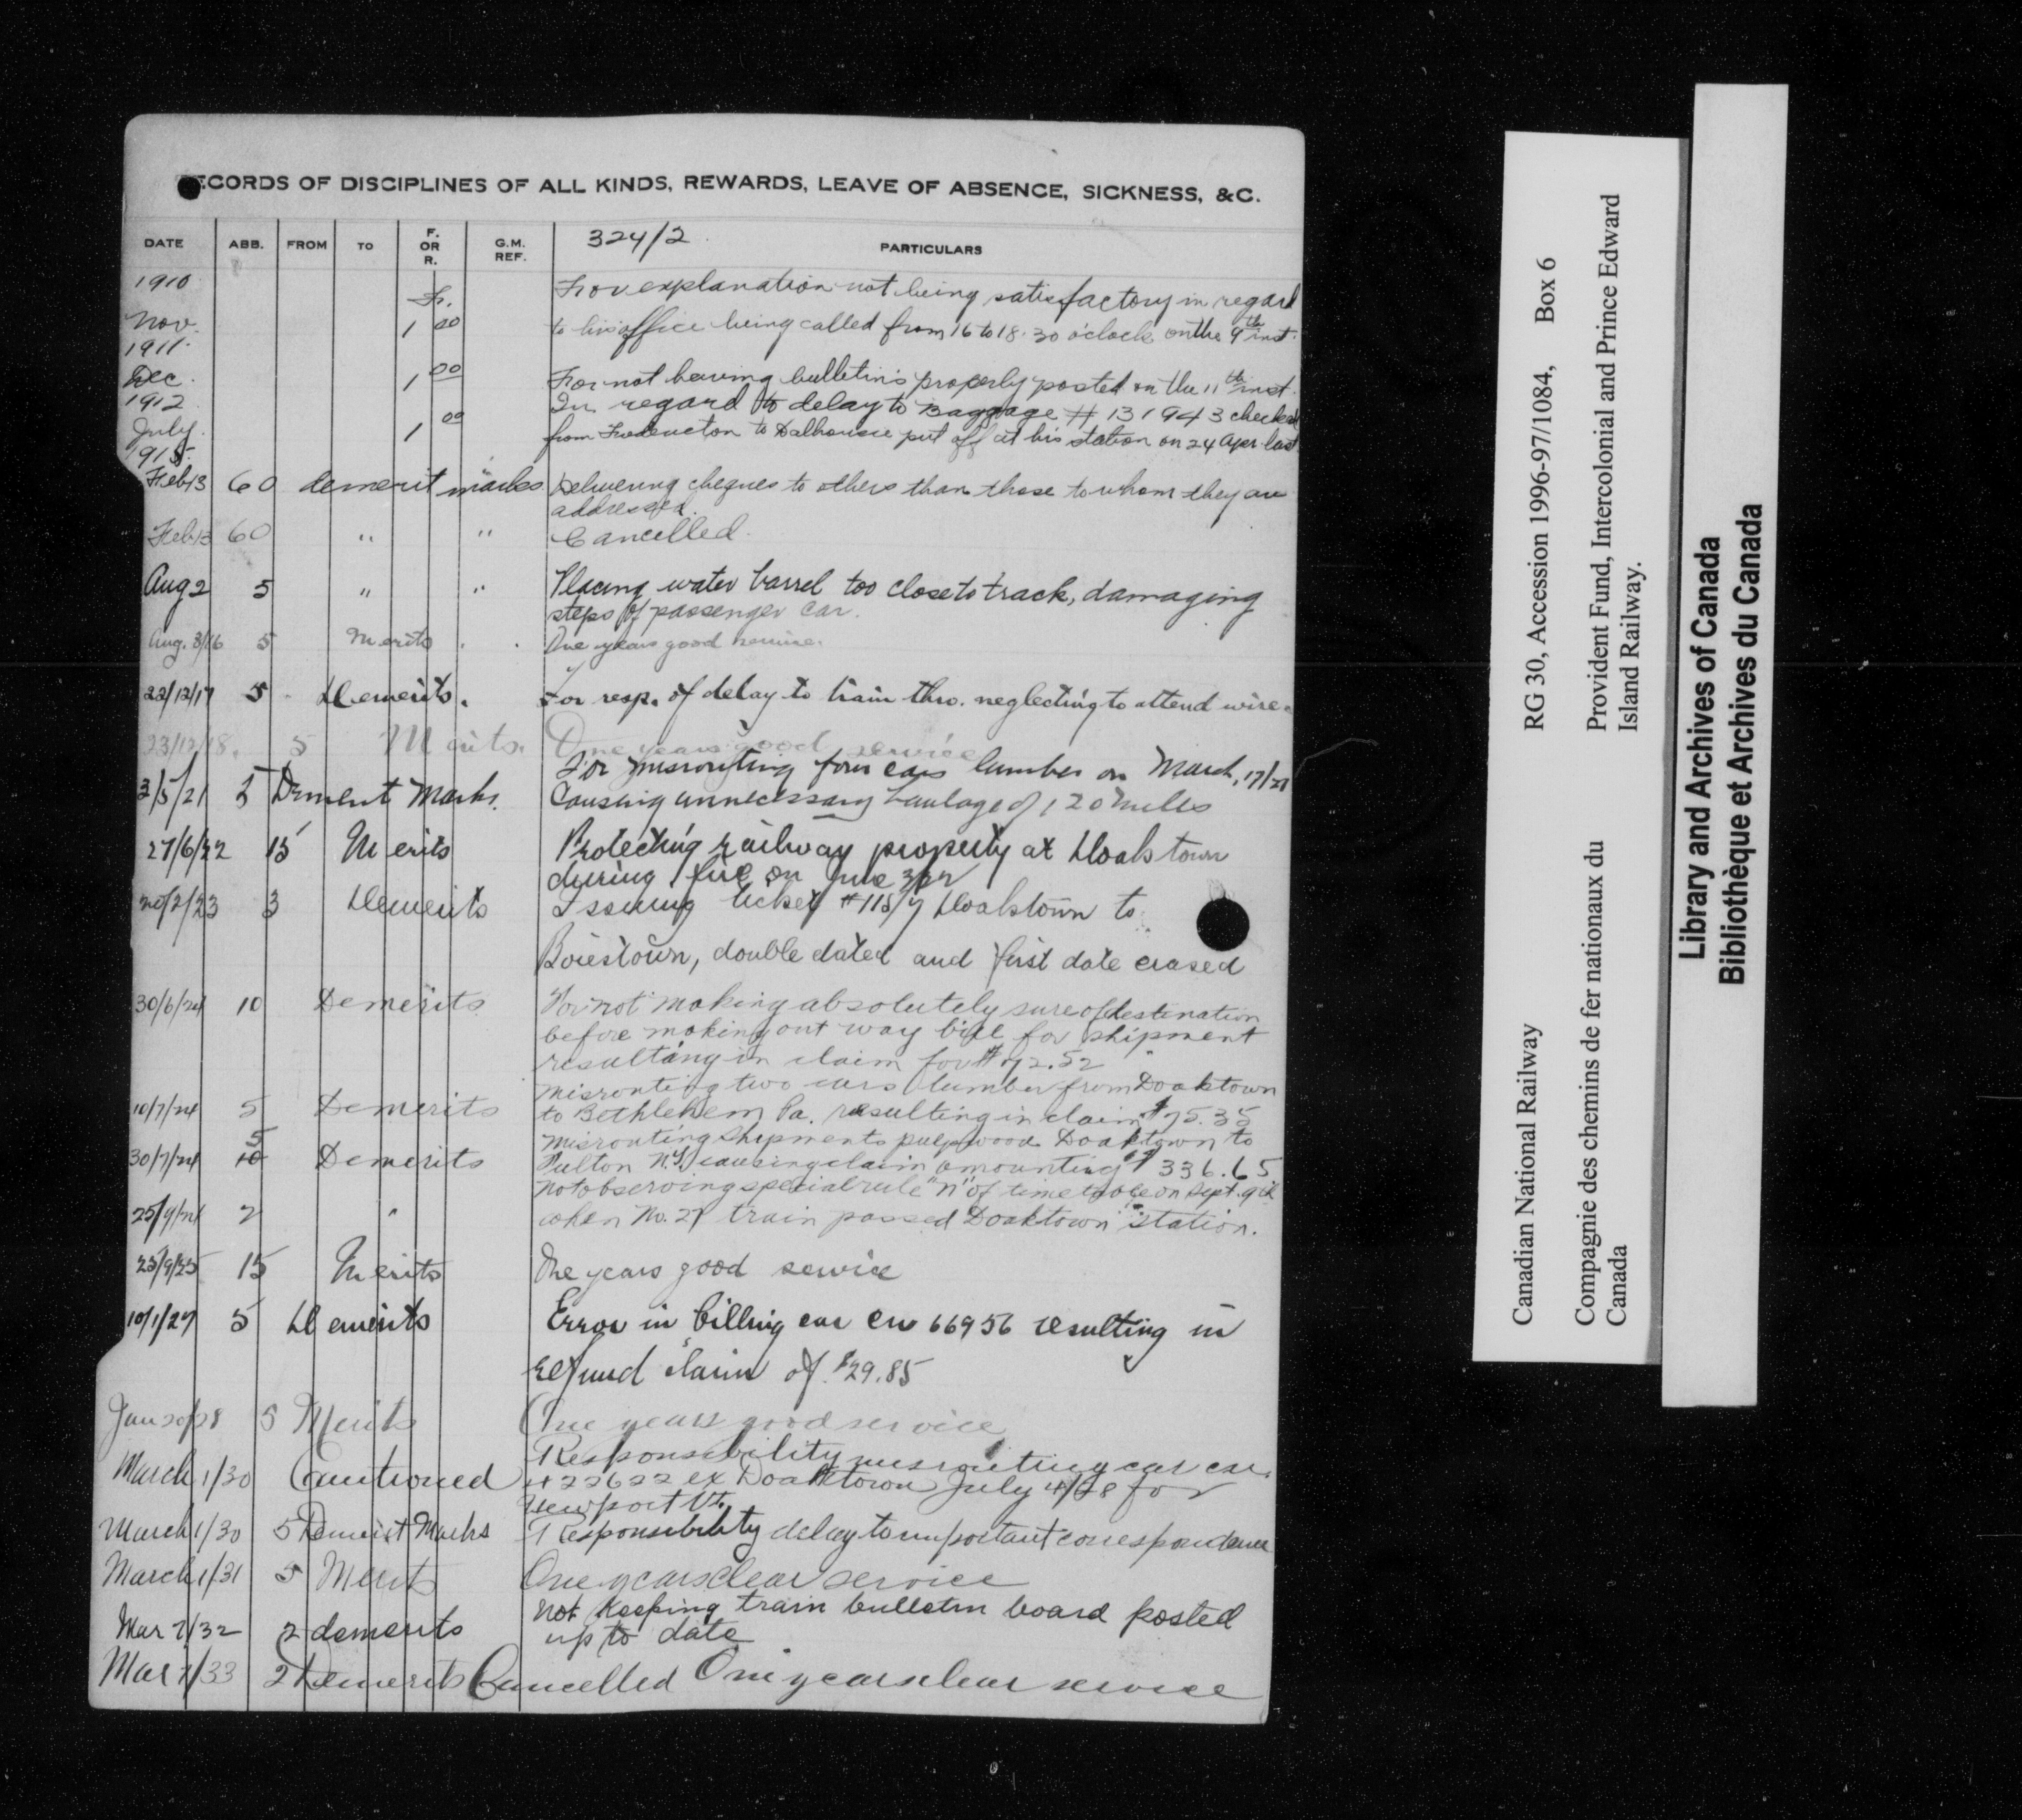 RECORDS OF DISCIPLINES OF ALL KINDS, REWARDS, LEAVE OF ABSENCE, SICKNESS, &C.
DATE ABB. FROM TO F. OR R. G.M. REF. 324/2 PARTICULARS
1910 Fr. For explanation not being satisfactory in regard
Nov. 1 00 to his office being called from 16 to 18.30 o'clock on the 9th inst.
1911.
Dec. 1 00 For not having bulletins properly posted on the 11th inst.
1912 In regard to delay to Baggage # 131943 checked
July. 1 00 from Fredericton to Dalhousie put off at his station on 24 Apr last
1915.
Feb 13 60 demerit marks Delivering cheques to others than those to whom they are
addressed.
Feb 13 60 " " Cancelled.
Aug 2 5 " " Placing water barrel too close to track, damaging
steps of passenger car.
Aug. 3/16 5 Merits . . One years good service.
22/12/17 5 Demerits. For resp. of delay to train thro. neglecting to attend wire.
23/12/18. 5 Merits. One years good service
For misrouting four cars lumber on March, 17/21
3/5/21 5 Demerit Marks. Causing unnecessary haulage of 120 miles
27/6/22 15 Merits Protecting railway property at Doaktown
during fire on June 3/22
20/2/23 3 Demerits Issuing ticket # 118/7 Doaktown to
Boiestown, double dated and first date erased
30/6/24 10 Demerits For not making absolutely sure of destination
before making out way bill for shipment
resulting in claim for $72.52
misrouting two cars lumber from Doaktown
10/7/24 5 Demerits to Bethlehem Pa. resulting in claim $75.35
5 misrouting shipments pulpwood Doaktown to
30/7/24 10 Demerits Fulton N.Y. causing claim amounting $336.65
Not observing special rule "N" of time table on Sept. 9th
25/9/24 2 " when No. 27 train passed Doaktown station.
25/9/25 15 Merits One years good service
10/1/27 5 Demerits Error in billing car CN 66956 resulting in
refund claim of $29.85
Jan 20/28 5 Merits One years good service
Responsibility misrouting car
March 1/30 Cautioned # 22622 ex Doaktown July 4/28 for
Newport Vt.
March 1/30 5 Demerit Marks Responsibility delay to important correspondence
March 1/31 5 Merits One years clear service
Mar 7/32 2 demerits not keeping train bulletin board posted
up to date
Mar 7/33 2 Demerits Cancelled One years clear service
Canadian National Railway RG 30, Accession 1996-97/1084, Box 6
Compagnie des chemins de fer nationaux du Provident Fund, Intercolonial and Prince Edward
Canada Island Railway.
Library and Archives of Canada
Bibliothèque et Archives du Canada